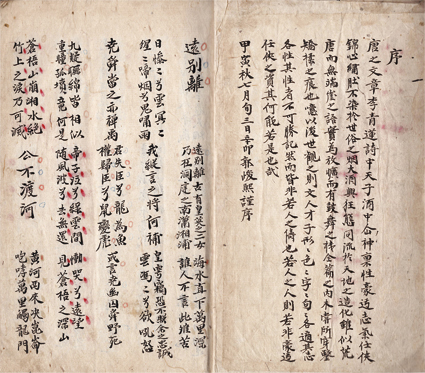 序
唐之文章李青蓮詩中天子酒中合神稟性豪邁志氣任俠
錦心繡肚不染於世俗之烟火酒興狂態同流於天地之造化雖似荒
唐而無端崖之語實為放曠而有鼓舞之全篇之內未嘗所穿鑿
矯揉之痕也噫以後世觀之則文人才子形形色色字字句句各適其志
各性其性者不可勝記然而實非若人之儔也若人之人則若非豪邁
任俠之資其何能若是也哉
甲寅秋七月旬三日辛卯熙謹序
遠別離
遠別離古有皇英之二女 海水直下萬里深
乃在洞庭之南瀟湘浦 誰人不言此離苦
日慘慘兮雲冥冥 我縱言之將何補 皇穹竊恐不照余之忠誠
猩猩啼烟兮鬼嘯雨 雲憑憑兮欲吼怒
堯舜當之亦禪禹 君失臣兮龍為魚 或言堯幽囚舜野死
權歸臣兮鼠變虎
九疑聯綿皆相似 帝子泣兮綠雲間 慟哭兮遠望
重瞳孤墳竟何是 隨風波兮去無還 見蒼梧之深山
蒼梧山崩湘水絕 公不渡河 黃河西來決崑崙
竹上之淚乃可滅 咆哮萬里觸龍門